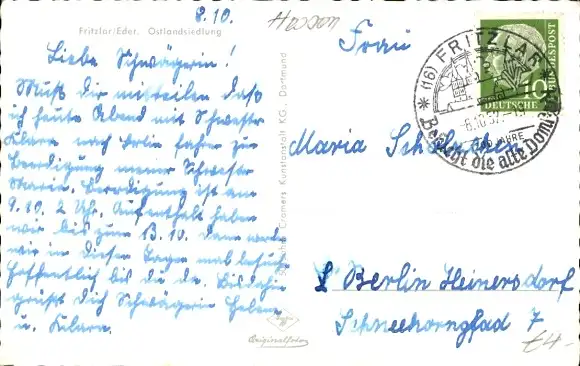 8.10.
Hessen
Fritzlar/Eder. Ostlandsiedlung
Liebe Schwägerin!
Muß dir mitteilen das
ich heute Abend mit Schwester
Klara nach Berlin fahre zur
Beerdigung meiner Schwester
Maria. Beerdigung ist am
9.10. 2 Uhr. Aufenthalt haben
wir bis zum 13.10. Dann werden
wir in diesen Tagen mal besuchen
hoffentlich bis du da. Bis dahin
grüßt dich Schwägerin
u. Klara.
Cramers Kunstanstalt KG., Dortmund
Originalfoto
Frau
Maria
S Berlin Heinersdorf
Schneehornpfad 7
£4-
(16) FRITZLAR
-8.10.57.-
JAHRE
Besucht die alte Domstadt
10
DEUTSCHE BUNDESPOST